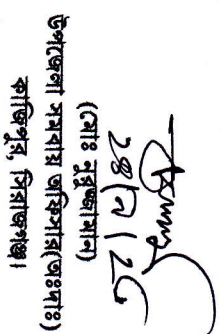 (মোঃ নুরুজ্জামান)
উপজেলা সমবায় অফিসার(অঃদাঃ)
কাজিপুর, সিরাজগঞ্জ।